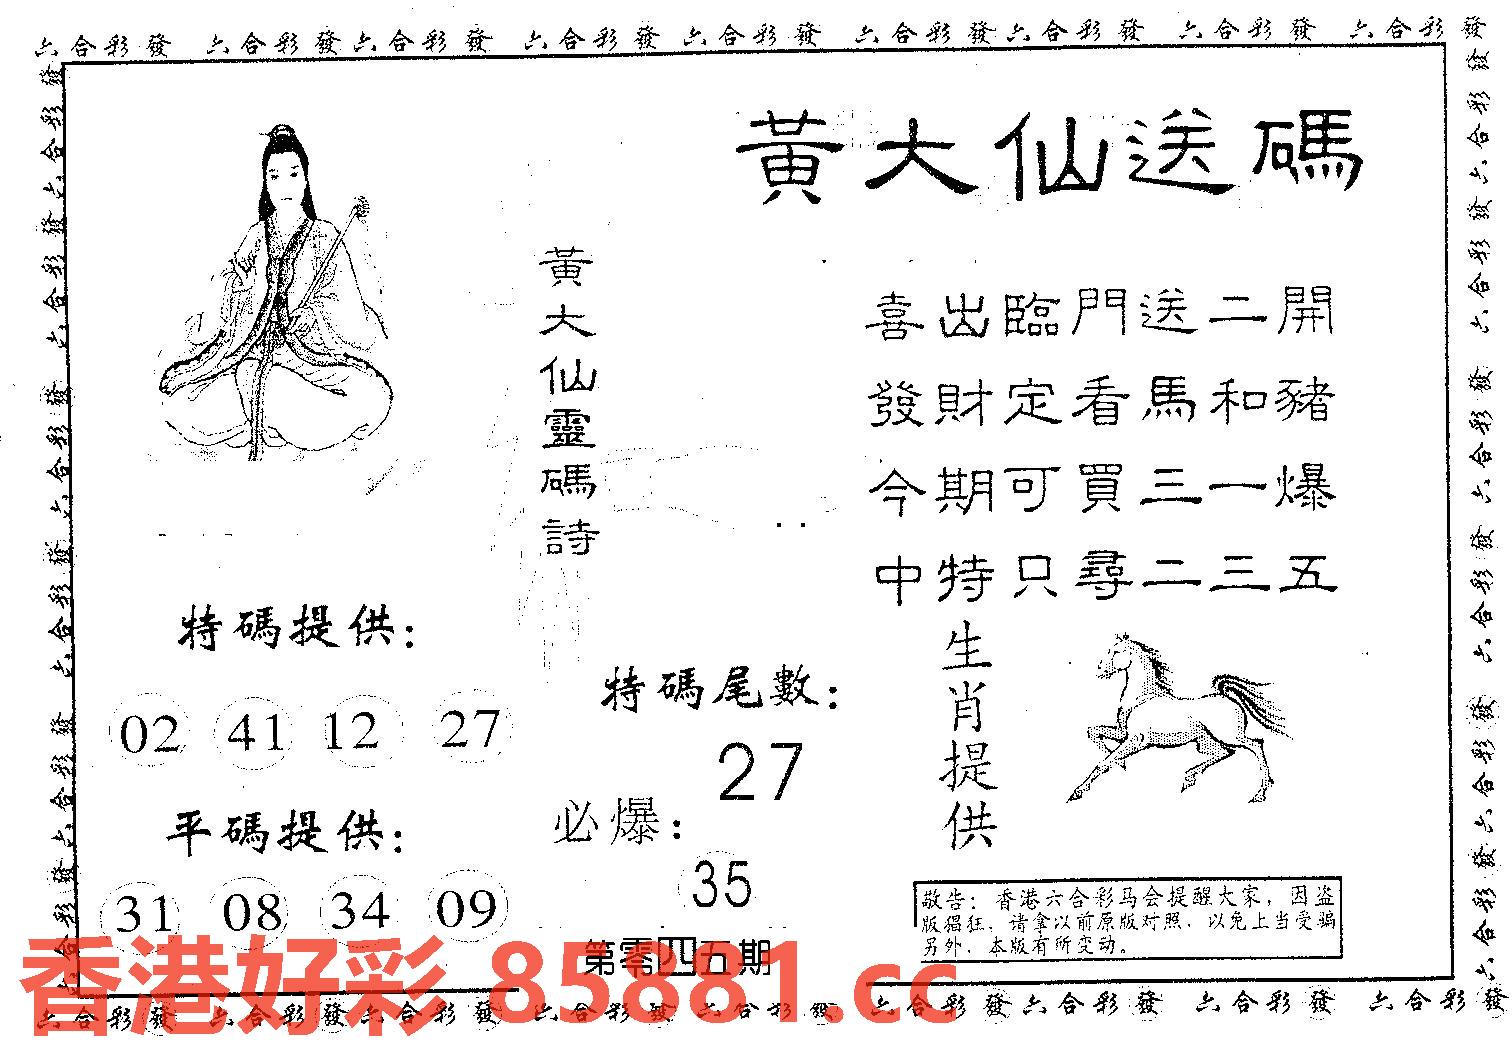 六合彩發 六合彩發 六合彩發 六合彩發 六合彩發 六合彩發 六合彩發 六合彩發 六合彩發
黃大仙送碼
黃大仙靈碼詩
喜出臨門送二開
發財定看馬和豬
今期可買三一爆
中特只尋二三五
特碼提供：
02 41 12 27
平碼提供：
31 08 34 09
特碼尾數：
27
必爆：
35
第零四五期
生肖提供
敬告：香港六合彩马会提醒大家，因盗
版猖狂，请拿以前原版对照，以免上当受骗
另外，本版有所变动。
香港好彩 85881.cc
六合彩發 六合彩發 六合彩發 六合彩發 六合彩發 六合彩發 六合彩發 六合彩發